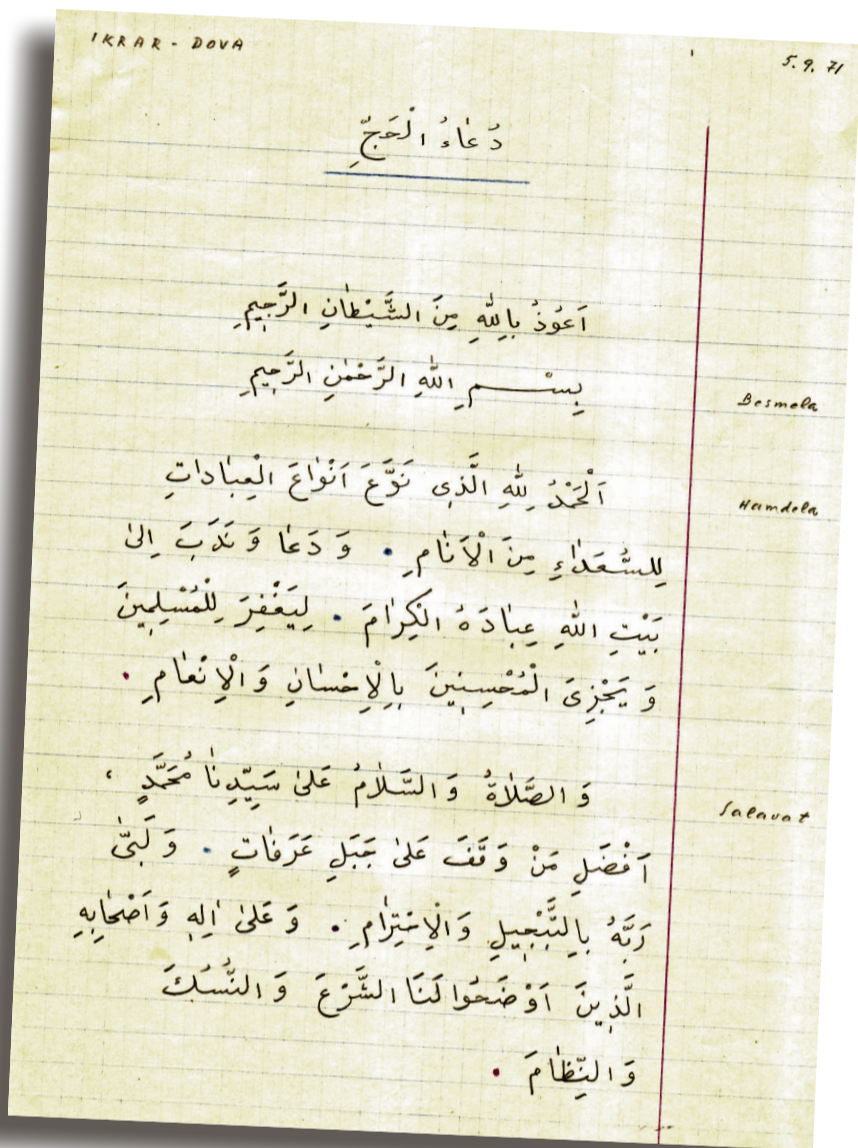 IKRAR - DOVA
5.9.71
دُعَاءُ الْحَجِّ
اَعُوذُ بِاللّٰهِ مِنَ الشَّيْطَانِ الرَّجِيمِ
بِسْمِ اللّٰهِ الرَّحْمٰنِ الرَّحِيمِ
Besmela
اَلْحَمْدُ لِلّٰهِ الَّذِى نَوَّعَ اَنْوَاعَ الْعِبَادَاتِ
Hamdela
لِلسُّعَدَاءِ مِنَ الْاَنَامِ . وَ دَعَا وَ نَدَبَ اِلىٰ
بَيْتِ اللّٰهِ عِبَادَهُ الْكِرَامَ . لِيَغْفِرَ لِلْمُسْلِمِينَ
وَ يَجْزِىَ الْمُحْسِنِينَ بِالْاِحْسَانِ وَ الْاِنْعَامِ .
وَ الصَّلَاةُ وَ السَّلَامُ عَلىٰ سَيِّدِنَا مُحَمَّدٍ ،
Salavat
اَفْضَلِ مَنْ وَقَفَ عَلىٰ جَبَلِ عَرَفَاتٍ . وَ لَبّٰى
رَبَّهُ بِالتَّبْجِيلِ وَالْاِحْتِرَامِ . وَ عَلىٰ اٰلِهِ وَ اَصْحَابِهِ
الَّذِينَ اَوْضَحُوا لَنَا الشَّرْعَ وَ النُّسُكَ
وَ النِّظَامَ .